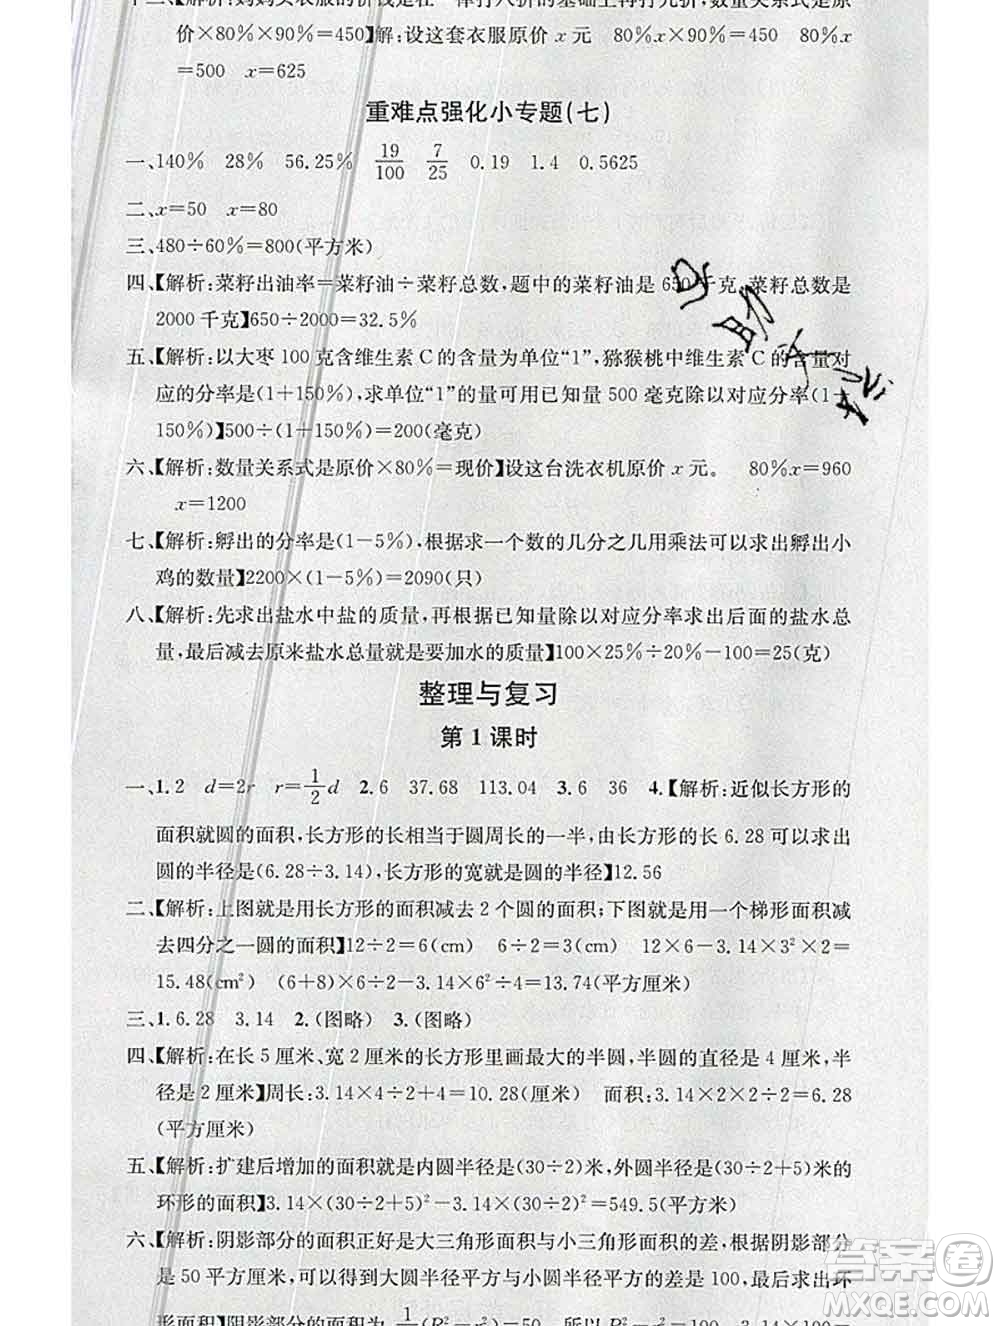 十二、【解析:妈妈买衣服的价钱是在一律打八折的基础上再打九折,数量关系式是原
价×80%×90%=450】解:设这套衣服原价 x 元 80%x×90%=450 80%x
=500 x=625
重难点强化小专题(七)
一、140% 28% 56.25% 19/100 7/25 0.19 1.4 0.5625
二、x=50 x=80
三、480÷60%=800(平方米)
四、【解析:菜籽出油率=菜籽油÷菜籽总数,题中的菜籽油是 650 千克,菜籽总数是
2000 千克】650÷2000=32.5%
五、【解析:以大枣 100 克含维生素 C 的含量为单位“1”,猕猴桃中维生素 C 的含量对
应的分率是(1+150%),求单位“1”的量可以用已知量 500 毫克除以对应分率(1+
150%)】500÷(1+150%)=200(毫克)
六、【解析:数量关系式是原价×80%=现价】设这台洗衣机原价 x 元。 80%x=960
x=1200
七、【解析:孵出的分率是(1-5%),根据求一个数的几分之几用乘法可以求出孵出小
鸡的数量】2200×(1-5%)=2090(只)
八、【解析:先求出盐水中盐的质量,再根据已知量除以对应分率求出后面的盐水总
量,最后减去原来盐水总量就是要加水的质量】100×25%÷20%-100=25(克)
整理与复习
第 1 课时
一、1.2 d=2r r=1/2 d 2.6 37.68 113.04 3.6 36 4.【解析:近似长方形的
面积就圆的面积,长方形的长相当于圆周长的一半,由长方形的长 6.28 可以求出
圆的半径是(6.28÷3.14),长方形的宽就是圆的半径】12.56
二、【解析:上图就是用长方形的面积减去 2 个圆的面积;下图就是用一个梯形面积减
去四分之一圆的面积】12÷2=6(cm) 6÷2=3(cm) 12×6-3.14×3²×2=
15.48(cm²) (6+8)×6÷2-3.14×6²÷4=13.74(平方厘米)
三、1.6.28 3.14 2.(图略) 3.(图略)
四、【解析:在长 5 厘米、宽 2 厘米的长方形里画最大的半圆,半圆的直径是 4 厘米,半
径是 2 厘米】周长:3.14×4÷2+4=10.28(厘米) 面积:3.14×2×2÷2=6.28
(平方厘米)
五、【解析:扩建后增加的面积就是内圆半径是(30÷2)米,外圆半径是(30÷2+5)米的
环形的面积】3.14×(30÷2+5)²-3.14×(30÷2)²=549.5(平方米)
六、【解析:阴影部分的面积正好是大三角形面积与小三角形面积的差,根据阴影部分
是 50 平方厘米,可以得到大圆半径平方与小圆半径平方的差是 100,最后求出环
形面积】阴影部分的面积为 1/2(R²-r²)=50
答案圈
MXQE.COM